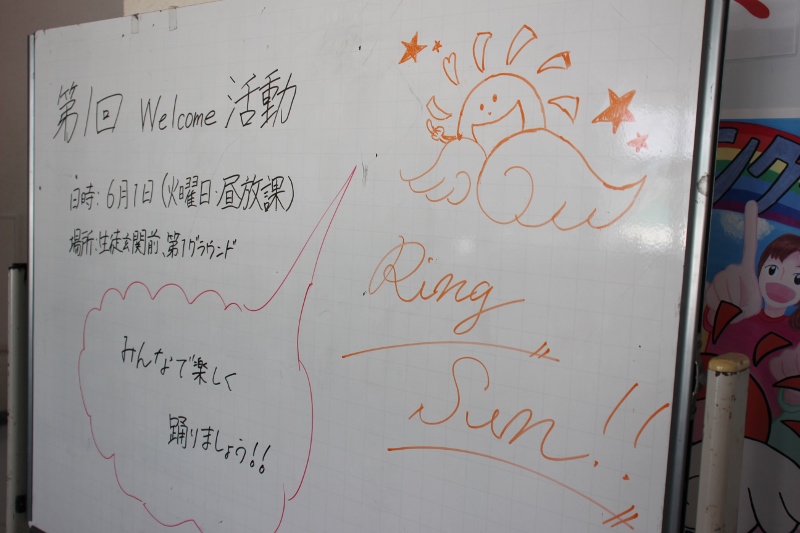 第1回 Welcome 活動
日時:6月1日(火曜日・昼放課)
場所:生徒玄関前、第1グラウンド
みんなで楽しく
踊りましょう!!
Ring
Sun!!
ング